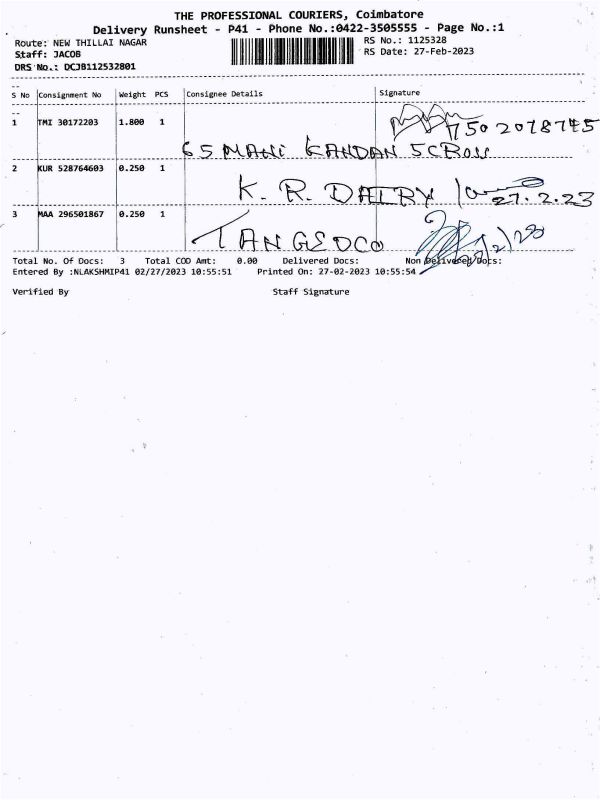 THE PROFESSIONAL COURIERS, Coimbatore
Delivery Runsheet - P41 - Phone No.:0422-3505555 - Page No.:1
Route: NEW THILLAI NAGAR RS No.: 1125328
Staff: JACOB RS Date: 27-Feb-2023
DRS No.: DCJB112532801
S No Consignment No Weight PCS Consignee Details Signature
1 TMI 30172203 1.800 1 7502078745
65 MANI KANDAN 5 CROSS
2 KUR 528764603 0.250 1
K. R. DAIRY 27.2.23
3 MAA 296501867 0.250 1
TANGEDCO
Total No. Of Docs: 3 Total COD Amt: 0.00 Delivered Docs: Non Delivered Docs:
Entered By :NLAKSHMIP41 02/27/2023 10:55:51 Printed On: 27-02-2023 10:55:54
Verified By Staff Signature